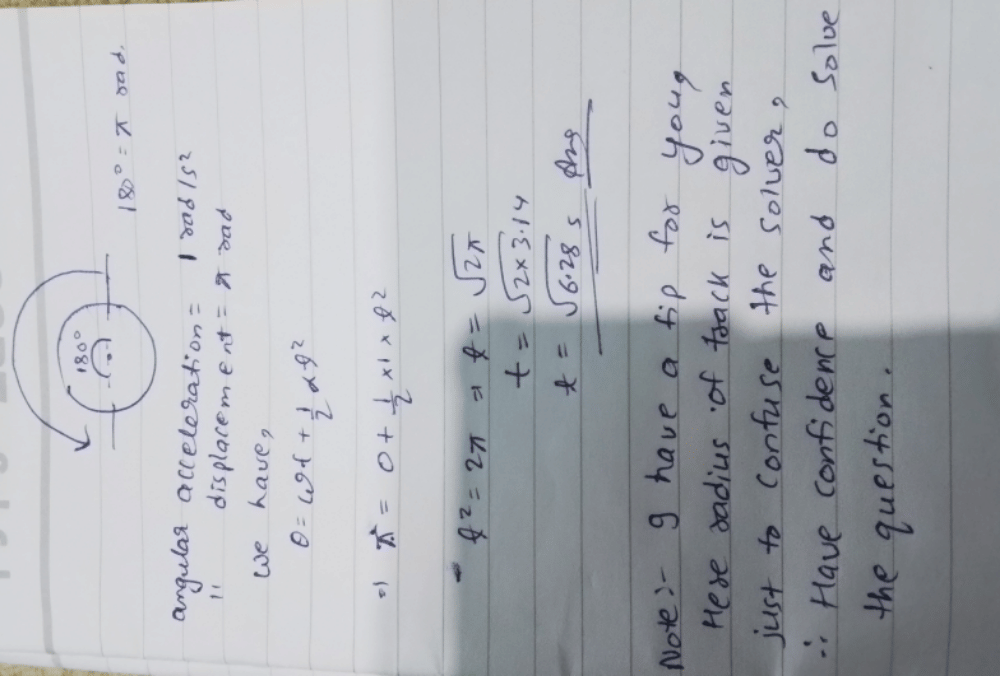 180°
180° = π rad.
angular acceleration = 1 rad/s²
" displacement = π rad
we have,
θ = ωt + 1/2 αt²
⇒ π = 0 + 1/2 × 1 × t²
t² = 2π ⇒ t = √2π
t = √2×3.14
t = √6.28 s Ans
Note:- I have a tip for you,
Here radius of track is given
just to confuse the solver,
∴ Have confidence and do solve
the question.